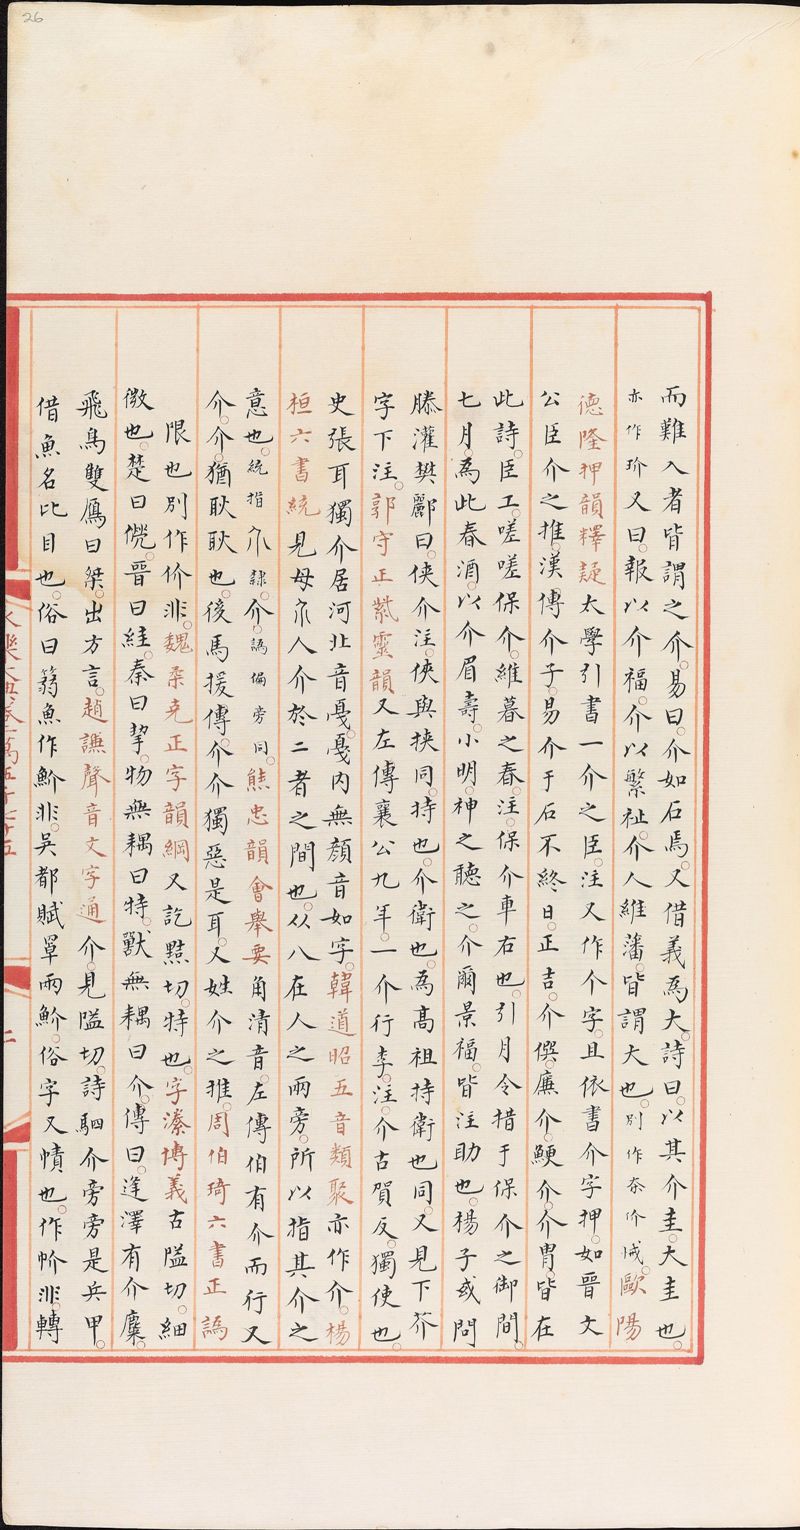 26
而難入者皆謂之介。易曰。介如石焉。又借義爲大。詩曰。以其介圭。大圭也。
亦作玠又曰。報以介福。介以繁祉。介人維藩。皆謂大也。別作夰价悈。歐陽
德隆押韻釋疑太學引書一介之臣。注又作个字。且依書介字押。如晉文
公臣介之推。漢傅介子。易介于石不終日。正吉。介僎。廉介。鯁介。介胄。皆在
此詩。臣工。嗟嗟保介。維暮之春。注。保介車右也。引月令措于保介之御間。
七月。爲此春酒。以介眉壽。小明。神之聽之。介爾景福。皆注助也。楊子或問
滕灌樊酈曰。俠介注。俠與挾同。持也。介衛也。爲髙祖持衛也同。又見下芥
字下注。郭守正紫雲韻又左傳襄公九年。一介行李。注。介古賀反。獨使也。
史張耳獨介居河北音戛。戛内無顔音如字。韓道昭五音類聚亦作介。楊
桓六書統見母介人介於二者之間也。从八在人之兩旁。所以指其介之
意也。統指介隸。介。譌偏旁同。熊忠韻會舉要角清音。左傳伯有介而行又
介。介。猶耿耿也。後馬援傳。介介獨惡是耳。又姓介之推。周伯琦六書正譌
限也別作价非。魏柔克正字韻綱又訖黠切。特也。字溱博義古隘切。細
微也。楚曰㑮。晉曰絓。秦曰挈。物無耦曰特。獸無耦曰介。傳曰。逢澤有介麋。
飛鳥雙鴈曰椉。出方言。趙謙聲音文字通介。見隘切。詩駟介旁旁是兵甲。
借魚名比目也。俗曰篛魚作魪非。吳都賦罩兩魪。俗字又幘也。作㠹非。轉
永樂大典卷一萬五千七十五
二